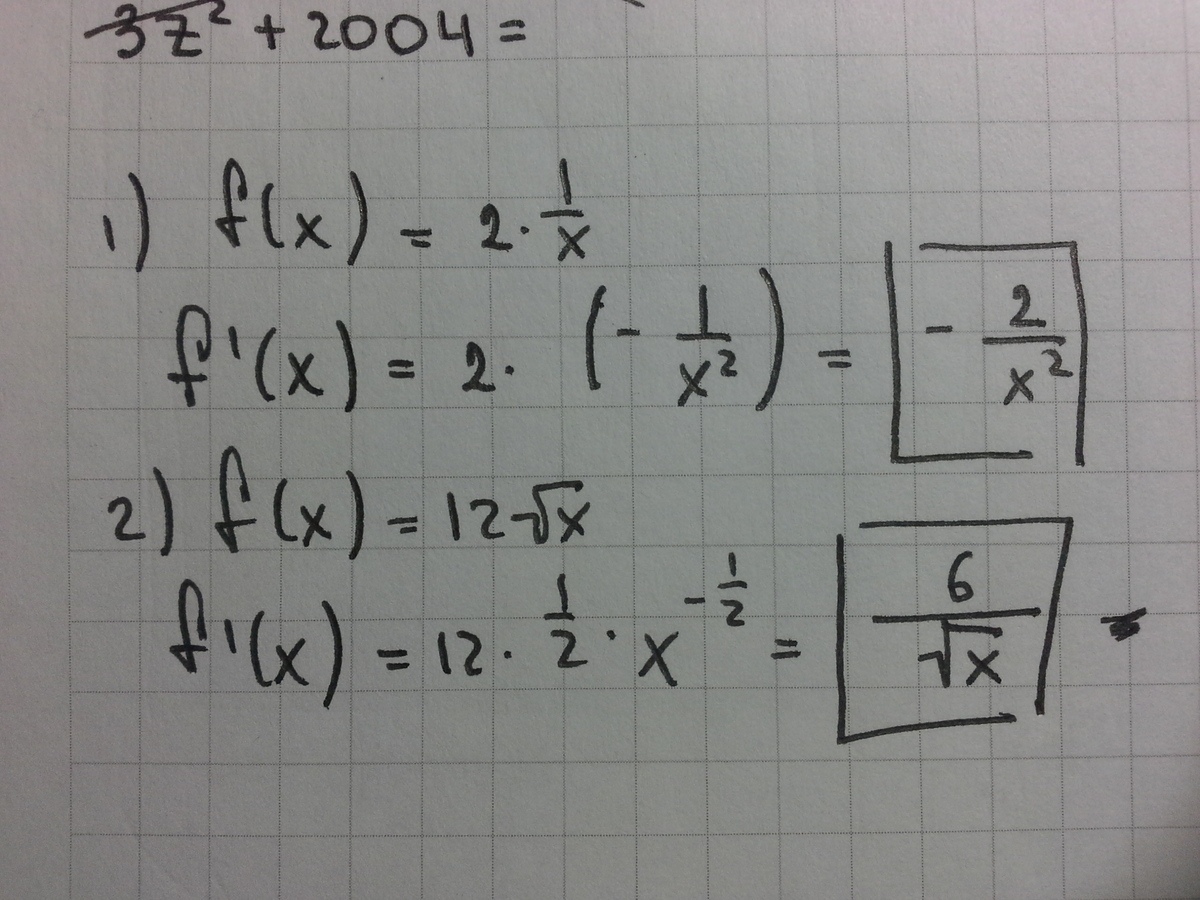 3z² + 2004 =
1) f(x) = 2 · 1/x
f'(x) = 2 · (- 1/x²) = - 2/x²
2) f(x) = 12√x
f'(x) = 12 · 1/2 · x^(-1/2) = 6/√x